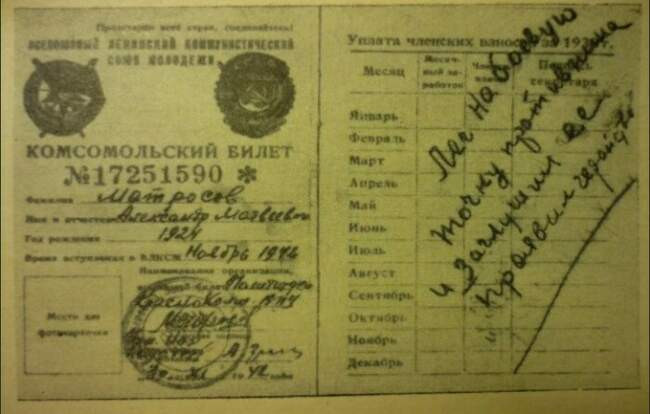 Пролетарии всех стран, соединяйтесь!
ВСЕСОЮЗНЫЙ ЛЕНИНСКИЙ КОММУНИСТИЧЕСКИЙ
СОЮЗ МОЛОДЕЖИ
КОМСОМОЛЬСКИЙ БИЛЕТ
№17251590 *
Фамилия Матросов
Имя и отчество Александр Матвеевич
Год рождения 1924
Время вступления в ВЛКСМ Ноябрь 1942
Наименование организации,
выдавшей билет Политотдел
Место для
фотокарточки
1942 года
Уплата членских взносов за 19 г.
Месяц
Месяч-
ный за-
работок
Член.
Подпись
секретаря
Январь
Февраль
Март
Апрель
Май
Июнь
Июль
Август
Сентябрь
Октябрь
Ноябрь
Декабрь
Лег на боевую
точку противника
и заглушил ее
проявил геройство